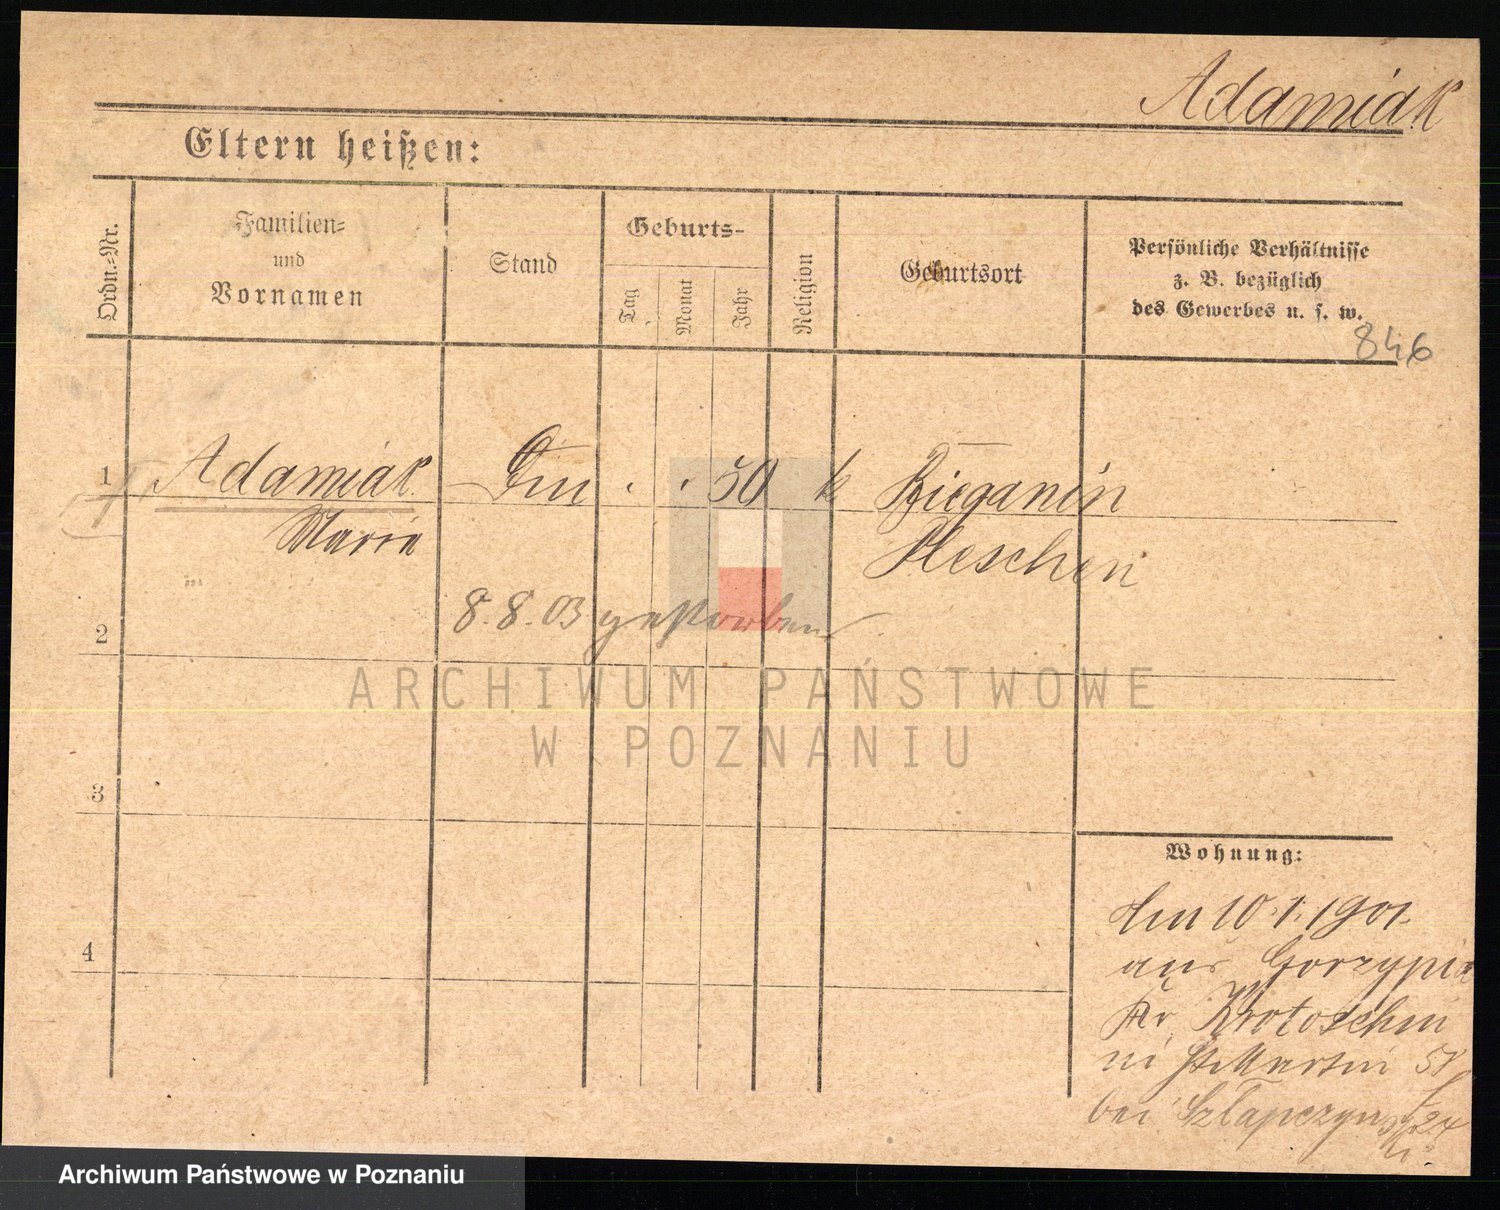 Adamiak
Eltern heißen:
Ordn.-Nr.
Familien-
und
Vornamen
Stand
Geburts-
Tag
Monat
Jahr
Religion
Geburtsort
Persönliche Verhältnisse
z. B. bezüglich
des Gewerbes u. s. w.
846
1
Adamiak
50
k
Bieganin
Maria
Pleschen
8.8.03 gestorben
2
ARCHIWUM PAŃSTWOWE
W POZNANIU
3
Wohnung:
10.1.1901.
4
aus
Kr Krotoschin
in St Martin
bei
Archiwum Państwowe w Poznaniu